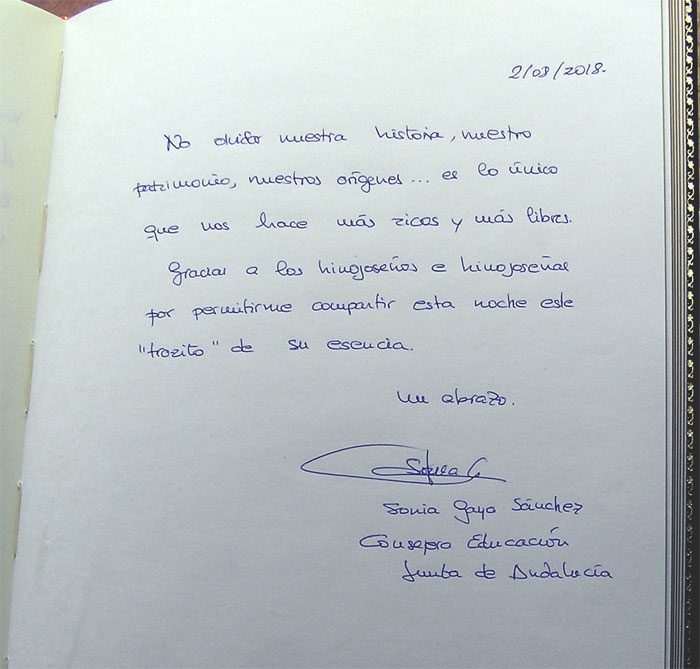 2/09/2018.
No olvidar nuestra historia, nuestro
patrimonio, nuestros orígenes... es lo único
que nos hace más ricos y más libres.
Gracias a los hinojoseños e hinojoseñas
por permitirme compartir esta noche este
"trozito" de su esencia.
Un abrazo.
Sonia G
Sonia Gaya Sánchez
Consejera Educación
Junta de Andalucía